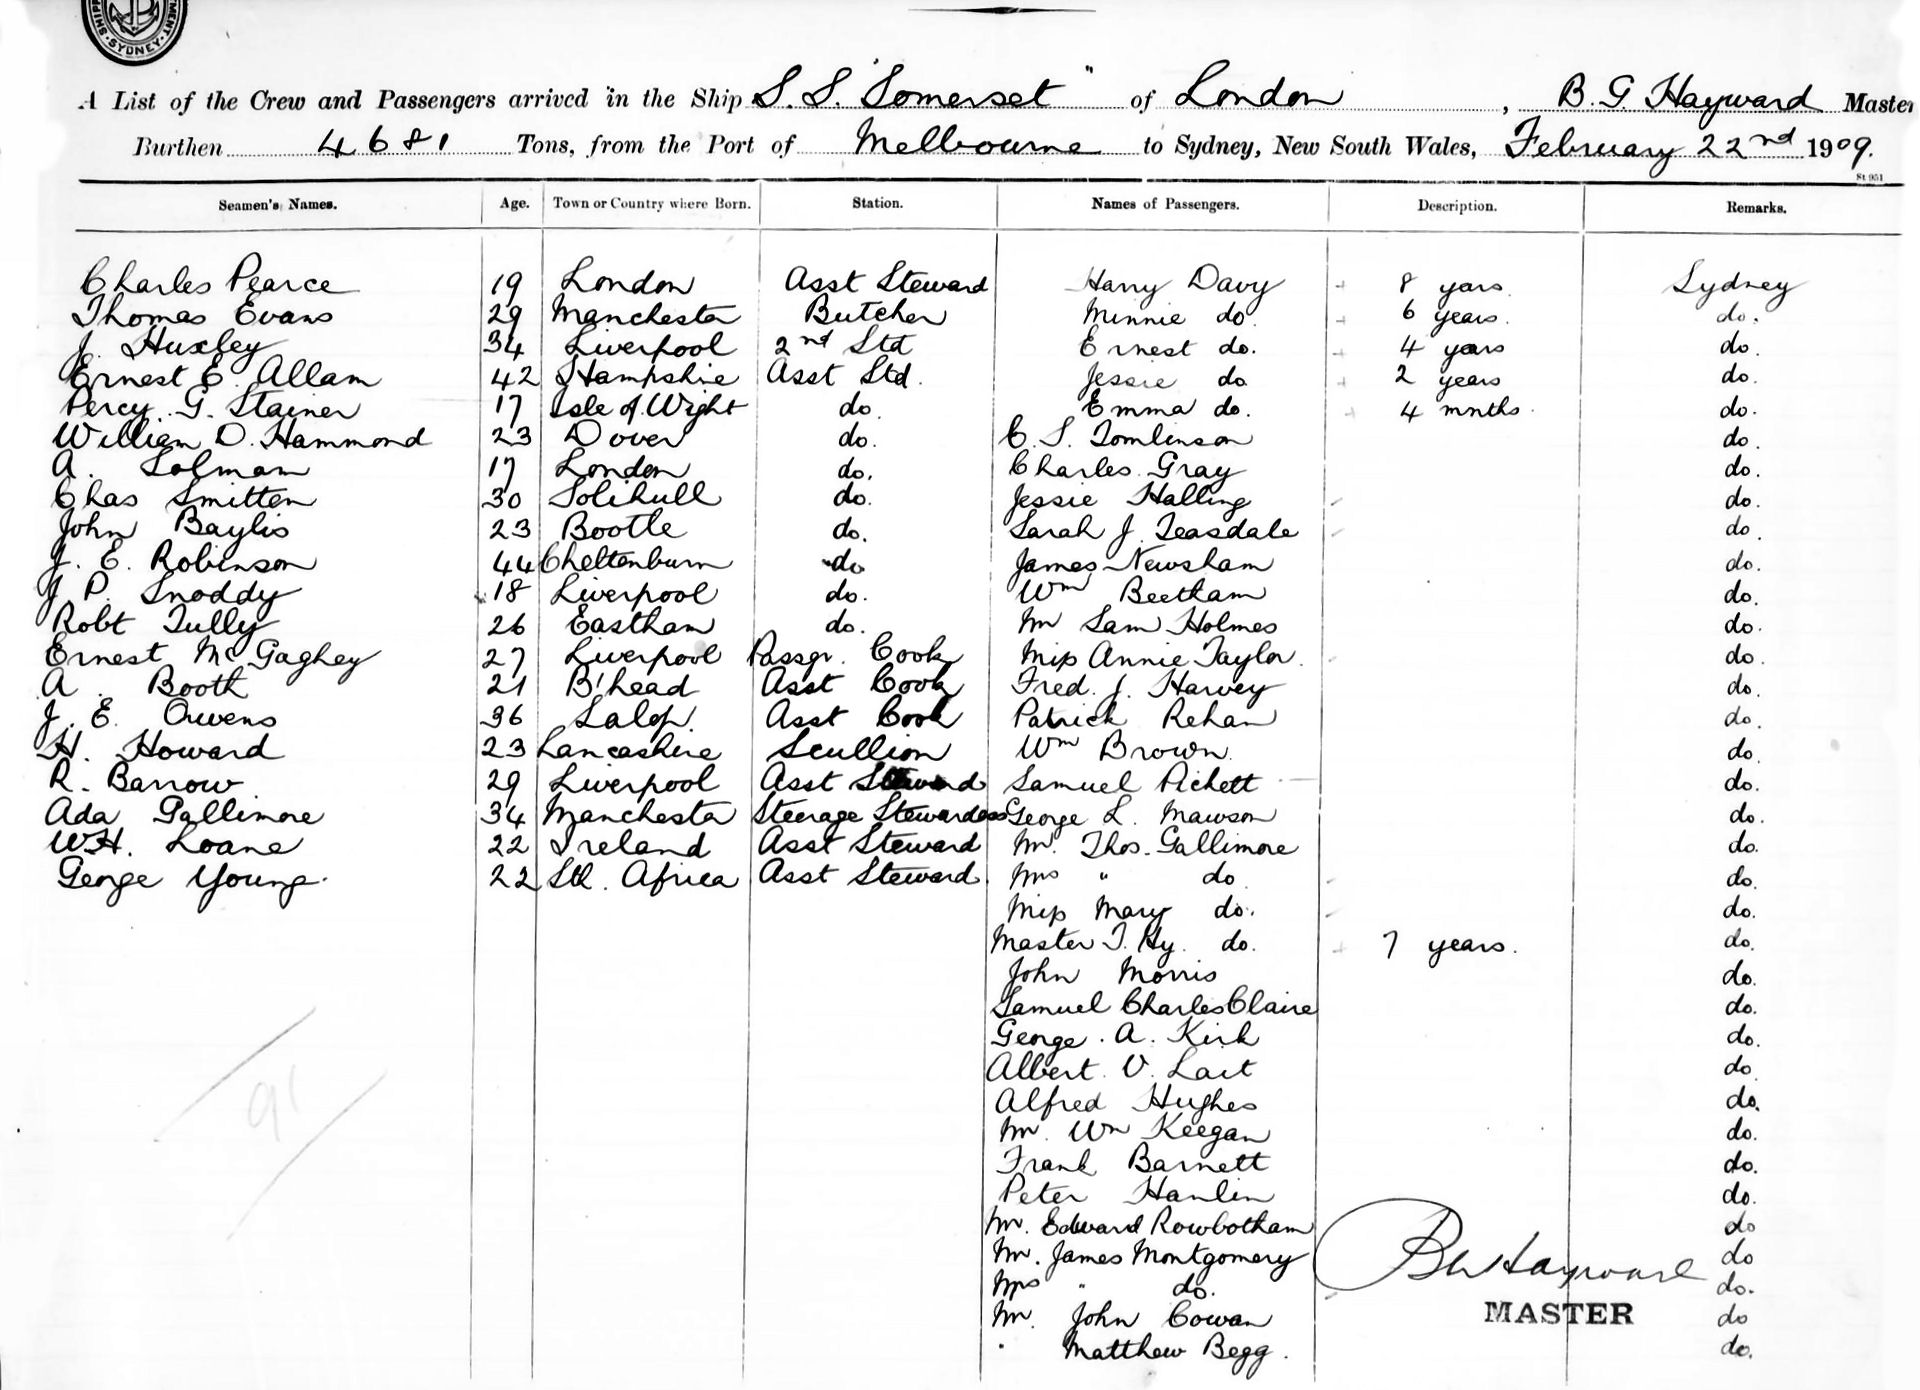 SYDNEY
A List of the Crew and Passengers arrived in the Ship S.S. "Somerset" of London, B. G. Hayward Master
Burthen 4681 Tons, from the Port of Melbourne to Sydney, New South Wales, February 22nd 1909.
St 951
Seamen's Names. Age. Town or Country where Born. Station. Names of Passengers. Description. Remarks.
Charles Pearce 19 London Asst Steward Harry Davy 8 yars Sydney
Thomas Evans 29 Manchester Butcher Minnie do. 6 years. do.
J. Huxley 34 Liverpool 2nd Std Ernest do. 4 years do.
Ernest E. Allam 42 Hampshire Asst Std. Jessie do 2 years do.
Percy. G. Stainer 17 Isle of Wight do. Emma do. 4 mnths. do.
William D. Hammond 23 Dover do. C. S. Tomlinson do.
A. Solman 17 London do. Charles Gray do.
Chas Smitten 30 Solihull do. Jessie Halling do.
John Baylis 23 Bootle do. Sarah J. Teasdale do.
J. E. Robinson 44 Cheltenburn do James Newsham do.
J P. Snoddy 18 Liverpool do. Wm Beetham do.
Robt Tully 26 Eastham do. Mr Sam Holmes do.
Ernest McGaghey 27 Liverpool Passgr. Cook Miss Annie Taylor. do.
A. Booth 21 B'head Asst Cook Fred. J. Harvey do.
J. E. Owens 36 Salop. Asst Cook Patrick Rehan do.
H. Howard 23 Lancashire Scullion Wm Brown do.
R. Barrow 29 Liverpool Asst Steward Samuel Pickett do.
Ada Gallimore 34 Manchester Steerage Stewardess George L. Mawson do.
W.H. Loane 22 Ireland Asst Steward Mr. Thos. Gallimore do.
George Young. 22 Sth. Africa Asst Steward. Mrs " do do.
Miss Mary do. do.
Master T. Hy. do. 7 years. do.
John Morris do.
Samuel Charles Claire do.
George. A. Kirk do.
Albert. V. Lait do.
Alfred Hughes do.
Mr. Wm Keegan do.
Frank Barnett do.
Peter Hanlin do.
Mr. Edward Rowbotham do
Mr. James Montgomery do
Mrs " do. do.
Mr. John Cowan do
Matthew Begg. do.
91
B G Hayward
MASTER